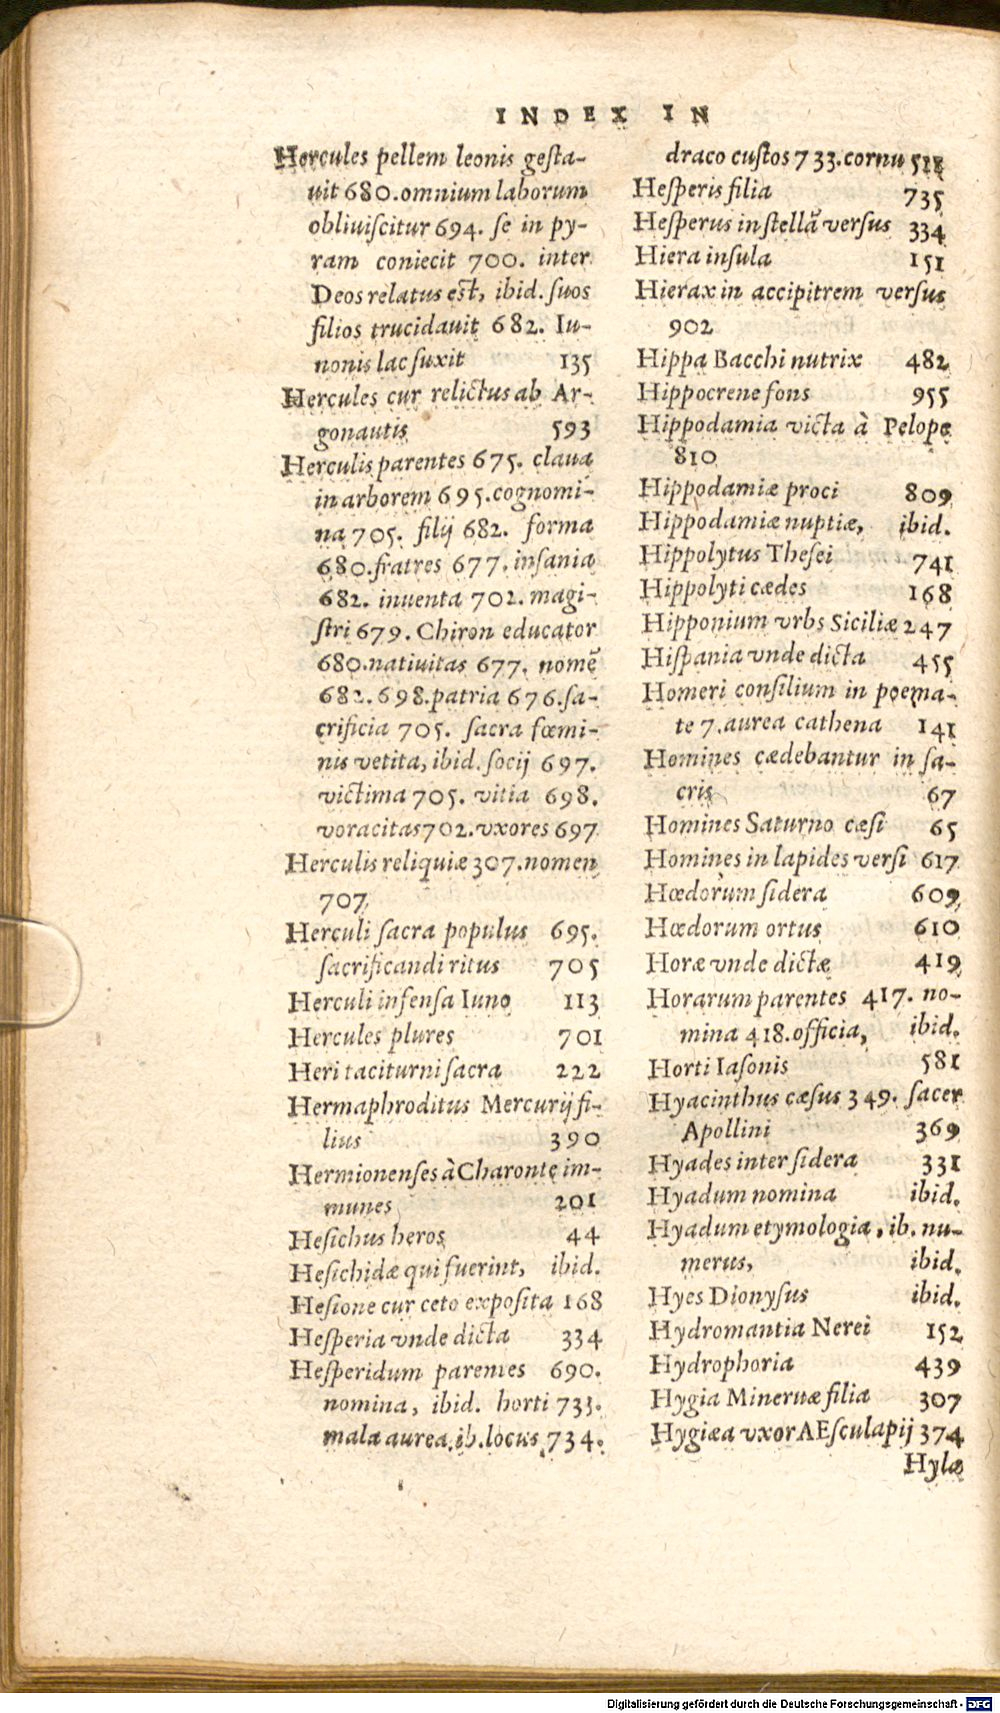 INDEX IN
Hercules pellem leonis gesta-
uit 680. omnium laborum
obliuiscitur 694. se in py-
ram coniecit 700. inter
Deos relatus est, ibid. suos
filios trucidauit 682. Iu-
nonis lac suxit 135
Hercules cur relictus ab Ar-
gonautis 593
Herculis parentes 675. claua
in arborem 695. cognomi-
na 705. filij 682. forma
680. fratres 677. insania
682. inuenta 702. magi-
stri 679. Chiron educator
680. natiuitas 677. nomẽ
682. 698. patria 676. sa-
crificia 705. sacra fœmi-
nis vetita, ibid. socij 697.
victima 705. vitia 698.
voracitas 702. vxores 697
Herculis reliquiæ 307. nomen
707
Herculi sacra populus 695.
sacrificandi ritus 705
Herculi infensa Iuno 113
Hercules plures 701
Heri taciturni sacra 222
Hermaphroditus Mercurij fi-
lius 390
Hermionenses à Charonte im-
munes 201
Hesichus heros 44
Hesichidæ qui fuerint, ibid.
Hesione cur ceto exposita 168
Hesperia vnde dicta 334
Hesperidum parentes 690.
nomina, ibid. horti 733.
mala aurea, ib. locus 734.
draco custos 733. cornu
Hesperis filia 735
Hesperus in stellã versus 334
Hiera insula 151
Hierax in accipitrem versus
902
Hippa Bacchi nutrix 482
Hippocrene fons 955
Hippodamia victa à Pelope
810
Hippodamiæ proci 809
Hippodamiæ nuptiæ, ibid.
Hippolytus Thesei 741
Hippolyti cædes 168
Hipponium vrbs Siciliæ 247
Hispania vnde dicta 455
Homeri consilium in poema-
te 7. aurea cathena 141
Homines cædebantur in sa-
cris 67
Homines Saturno cæsi 65
Homines in lapides versi 617
Hœdorum sidera 609
Hœdorum ortus 610
Horæ vnde dictæ 419
Horarum parentes 417. no-
mina 418. officia, ibid.
Horti Iasonis 581
Hyacinthus cæsus 349. sacer
Apollini 369
Hyades inter sidera 331
Hyadum nomina ibid.
Hyadum etymologia, ib. nu-
merus, ibid.
Hyes Dionysus ibid.
Hydromantia Nerei 152
Hydrophoria 439
Hygia Mineruæ filia 307
Hygiæa vxor AEsculapij 374
Hylæ
Digitalisierung gefördert durch die Deutsche Forschungsgemeinschaft - DFG